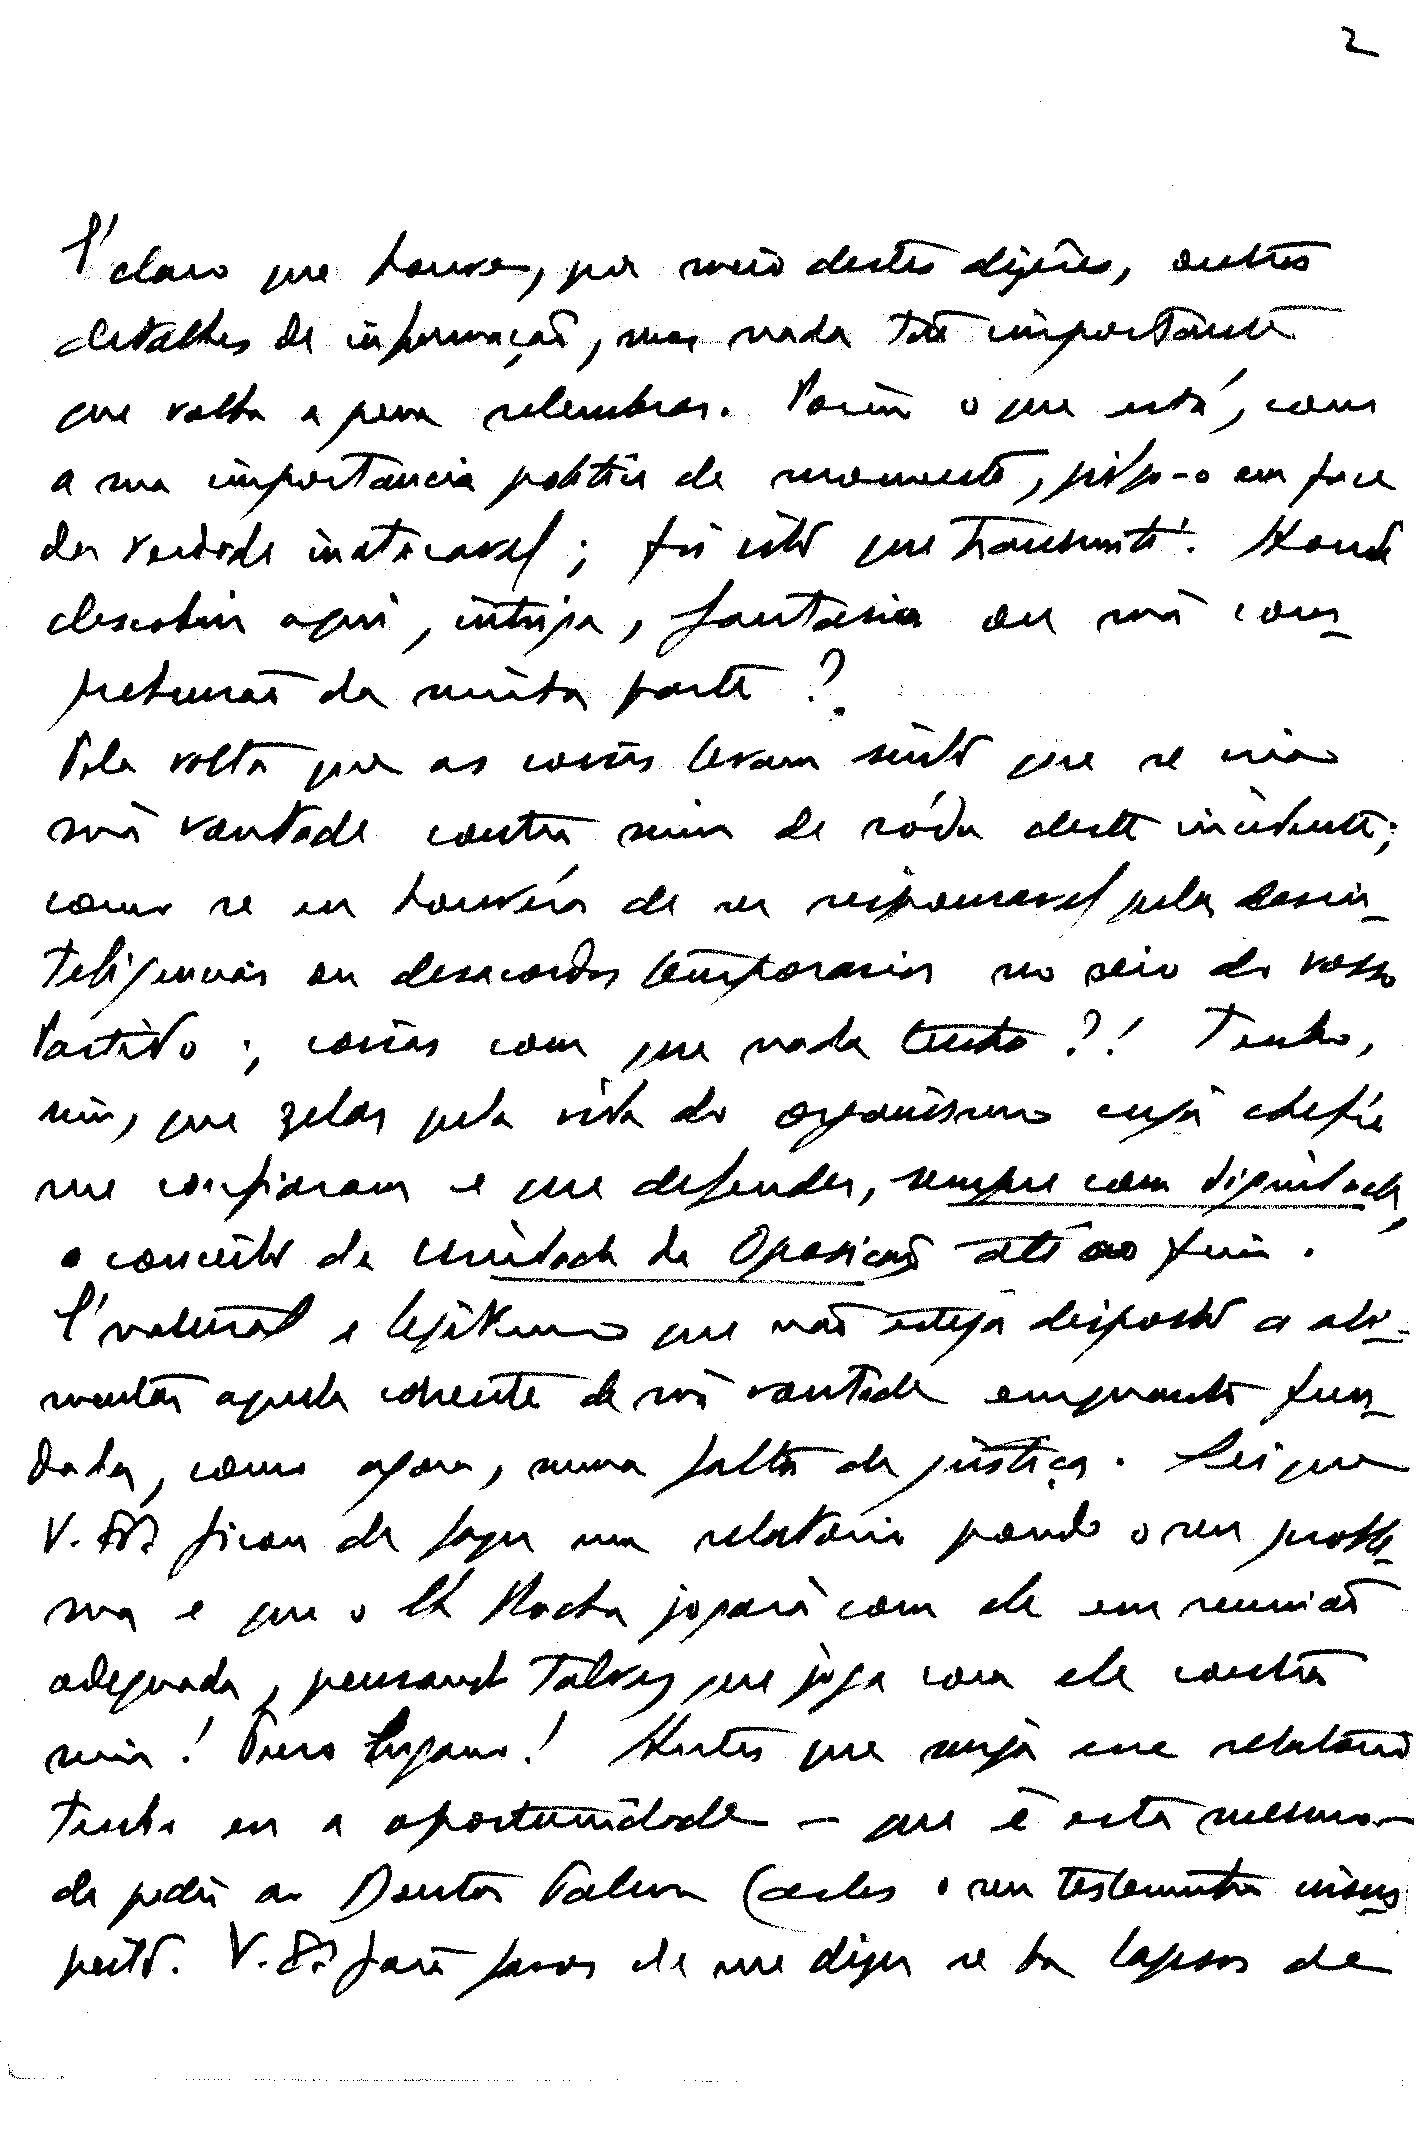 2
É claro que houve, por meio destes dizeres, outros
detalhes de informação, mas nada tão importante
que valha a pena relembrar. Porém o que está, com
a sua importância politica de momento, julgo-o em face
da verdade inatacavel; foi isto que transmiti. Aonde
descobrir aqui, intriga, fantasia ou má com-
preensão da minha parte?
Pela volta que as coisas levam sinto que se cria
má vontade contra mim de róda deste incidente;
como se eu houvéra de ser responsavel pelas desin-
teligencias ou desacordos temporarios no seio do vosso
Partido; coisas com que nada tenho?! Tenho,
sim, que zelar pela vida do organismo cuja chefia
me confiaram e que defender, sempre com dignidade,
o conceito de Unidade da Oposição até ao fim.
É natural e legitimo que não esteja disposto a ali-
mentar aquela corrente de má vontade enquanto fun-
dada, como agora, numa falta de justiça. Sei que
V. Exª ficou de fazer um relatorio pondo o seu proble-
ma e que o Cá Rocha jogará com ele em reunião
adequada, pensando talvez que joga com ele contra
mim! Puro engano! Antes que surja esse relatorio
tenho eu a oportunidade — que é esta mesmo —
de pedir ao Doutor Palma (aceles o seu testemunho insus-
peito. V. Exª fará favor de me dizer se ha lapsos de